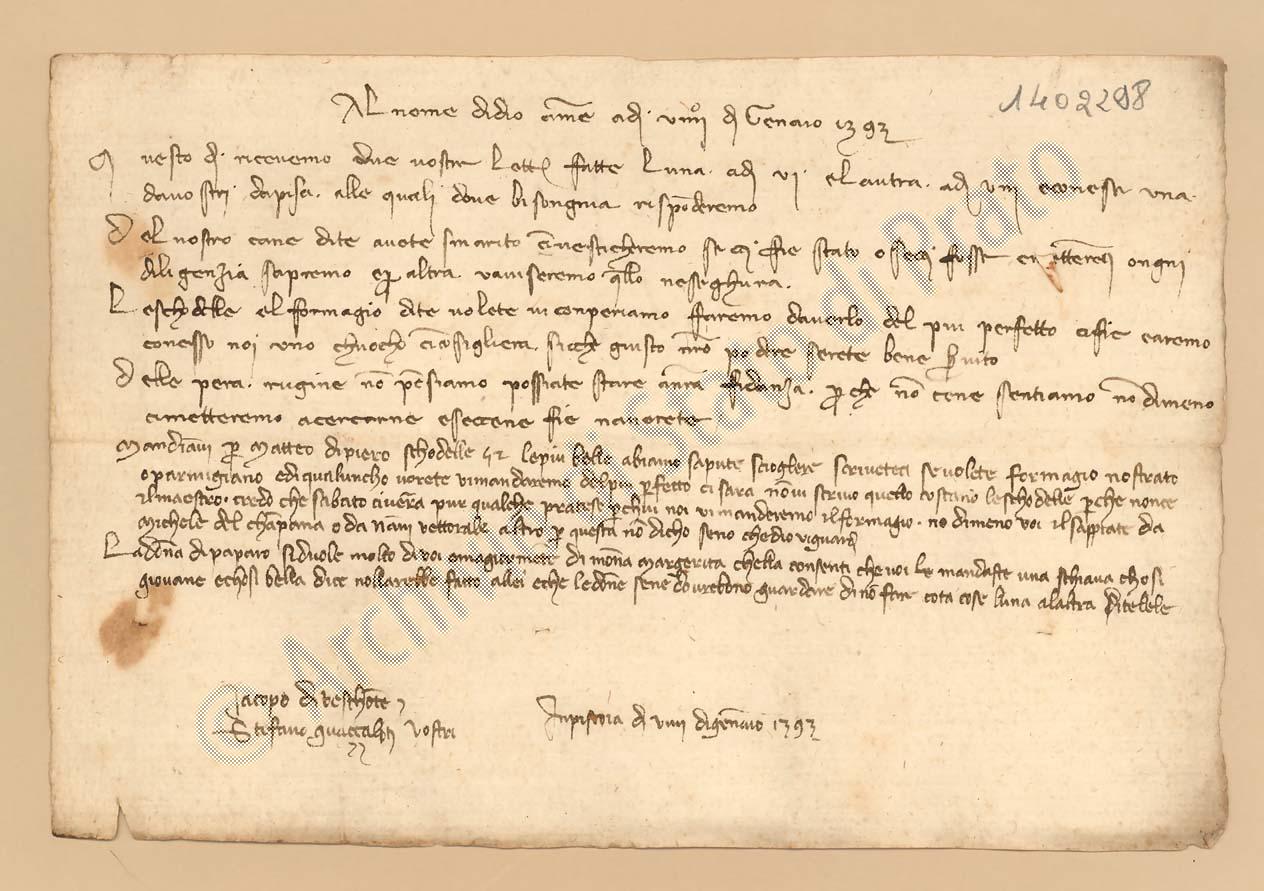 1402298
Al nome di dio amē adi viiiº di Gennaio 1393
Questo dì ricevemo due vostre lett fatte luna adi vi elautra adi viii e con essa una
da vostri dapisa alle quali dove bisongnia rispōderemo
Del vostro cane dite avete smarito se ci fie stato o seci fosse ongni
diligenzia sapremo altra vaviseremo qllo nesseghuira
Leschodelle el formagio dite volete vi conperiamo faremo daverlo del piu perfetto ciffie earemo
conesso noi uno chuocho sicche giusto nrō podere serete bene
Delle pera rugine nō pēsiamo possiate stare fidanza pche nō cene sentiamo nō dimeno
cimetteremo acercarne esseccene fie navrete
Mandiāvi p Matteo dipiero schodelle lepiu belle abiamo sapute sciogliere scriveteci sevolete formagio nostrato
oparmigiano ediqualuncho vorete vimandaremo delpiu pfetto ci sara nōvi scrivo quello costano leschodelle pche nonce
ilmaestro credo che sabato civerrà pur qualche pratese pchui noi vi manderemo ilformagio no dimeno voi il sappiate da
Michele del chāpana o da Nani vettorale altro p questa nō dicho seno chedio viguardi
Ladōna di paparo siduole molto di voi emagiormete di mōna margerita chella consenti che voi le mandaste una schiava chosi
giovane echosi bella dice nollarebbe fatto allei eche ledōne sene dovrebono guardare di nō fare cota cose luna alaltra ditelele
Jacopo di
Stefano guazzalotti vostri
Inpistoia dì viiii digēnaio 1393
© Archivio di Stato di Prato